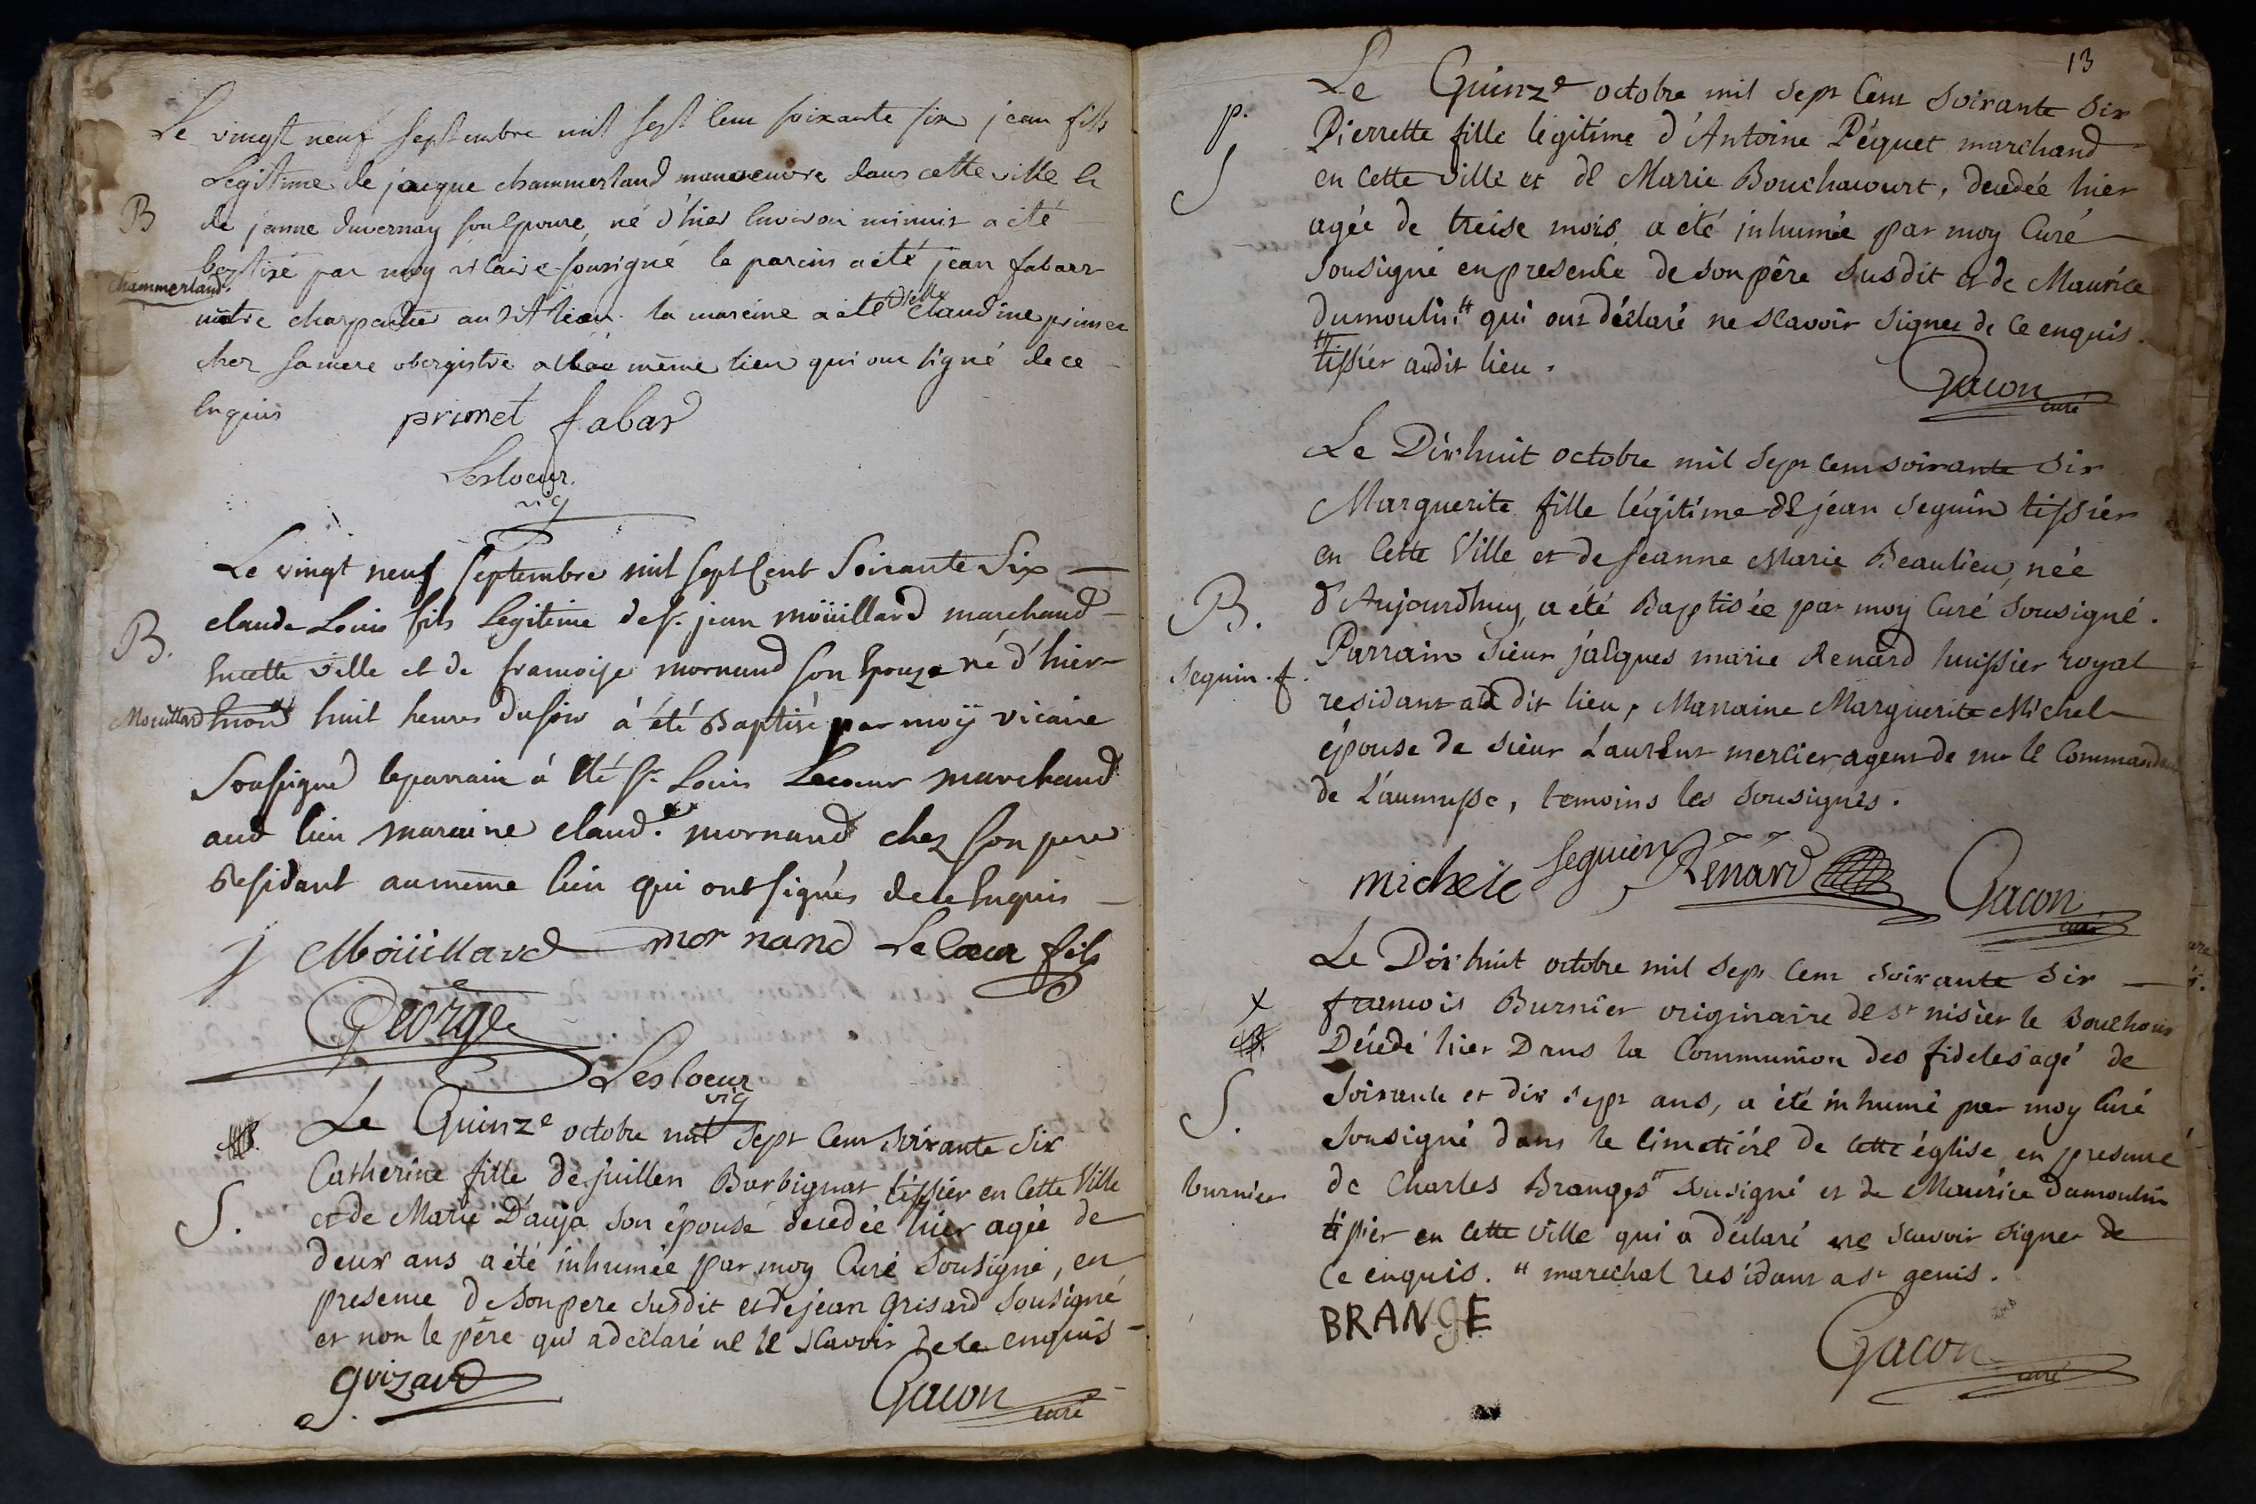 Le vingt neuf septembre mil sept cent soixante six jean fils
Legitime de jacque chammerland manoeuvre dans cette ville et
B
de janne duvernay son Epouse, né d'hier environ minuit a été
baptisé par moy vicaire sousigné le parein a été jean fabard
chammerland.
maitre charpentier au d. lieu. la mareine a été dlle claudine primet
chez sa mere obergiste même lieu qui ont signé de ce
Enquis
primet fabard
Lescloeur.
vic
Le vingt neuf septembre mil sept Cent Soixante Six
claude Louis fils Legitime de sr. jean moüillard marchand
B.
En cette ville et de francoise mornand son Epouze né d'hier
Mouillard
environ huit heures du soir à été Baptisé par moÿ vicaire
Soussigné le parrain à été sr. Louis Lecoeur marchand
aud lieu maraine claud.e mornand chez son pere
Residant au meme lieu qui ont signés de ce Enquis
j Moüillard mornand Lecoeur fils
George
Lescoeur
vic
Le Quinze octobre mil sept cent soixante six
Catherine fille de juillen Barbignat tissier en cette Ville
S.
et de Marie Dauja son épouse decedée hier agée de
deux ans a été inhumée par moy Curé sousigné, en
presence de son pere susdit et de jean Grisard sousigné
et non le père qui a déclaré ne le scavoir de ce enquis
grizard
Gacon
curé
13
Le Quinze octobre mil sept cent soixante six
p.
Pierrette fille légitime d'Antoine Péquet marchand
S
en cette ville et de Marie Bouchacourt, decedée hier
agée de treise mois a été inhumée par moy Curé
sousigné en presence de son père susdit et de Maurice
dumoulin # qui ont déclaré ne scavoir signer de ce enquis.
# tissier audit lieu.
Gacon
curé
Le Dix huit octobre mil sept cent soixante six
Marguerite fille légitime de jean seguin tissier
en cette Ville et de Jeanne Marie Beaulieu, née
B.
d'Aujourdhuy, a été Baptisée par moy Curé sousigné.
Parrain sieur jacques marie Renard huissier royal
Seguin. f.
residant audit lieu, Marraine Marguerite Michel
épouse de sieur Laurent mercier agent de mr le Commandeur
de L'aumusse, temoins les sousignés.
michele seguien Renard
Gacon
curé
Le Dix huit octobre mil sept cent soixante six
x
francois Burnier originaire de st nisier le Bouchoux
Décédé hier Dans la Communion des fideles agé de
soixante et dix sept ans, a été inhumé par moy Curé
S.
sousigné dans le cimetière de cette église, en presence
burnier
de Charles Branges # sousigné et de Maurice dumoulin
tissier en cette ville qui a déclaré ne scavoir signer de
ce enquis. # marechal residant a st genis.
BRANGE
Gacon
curé